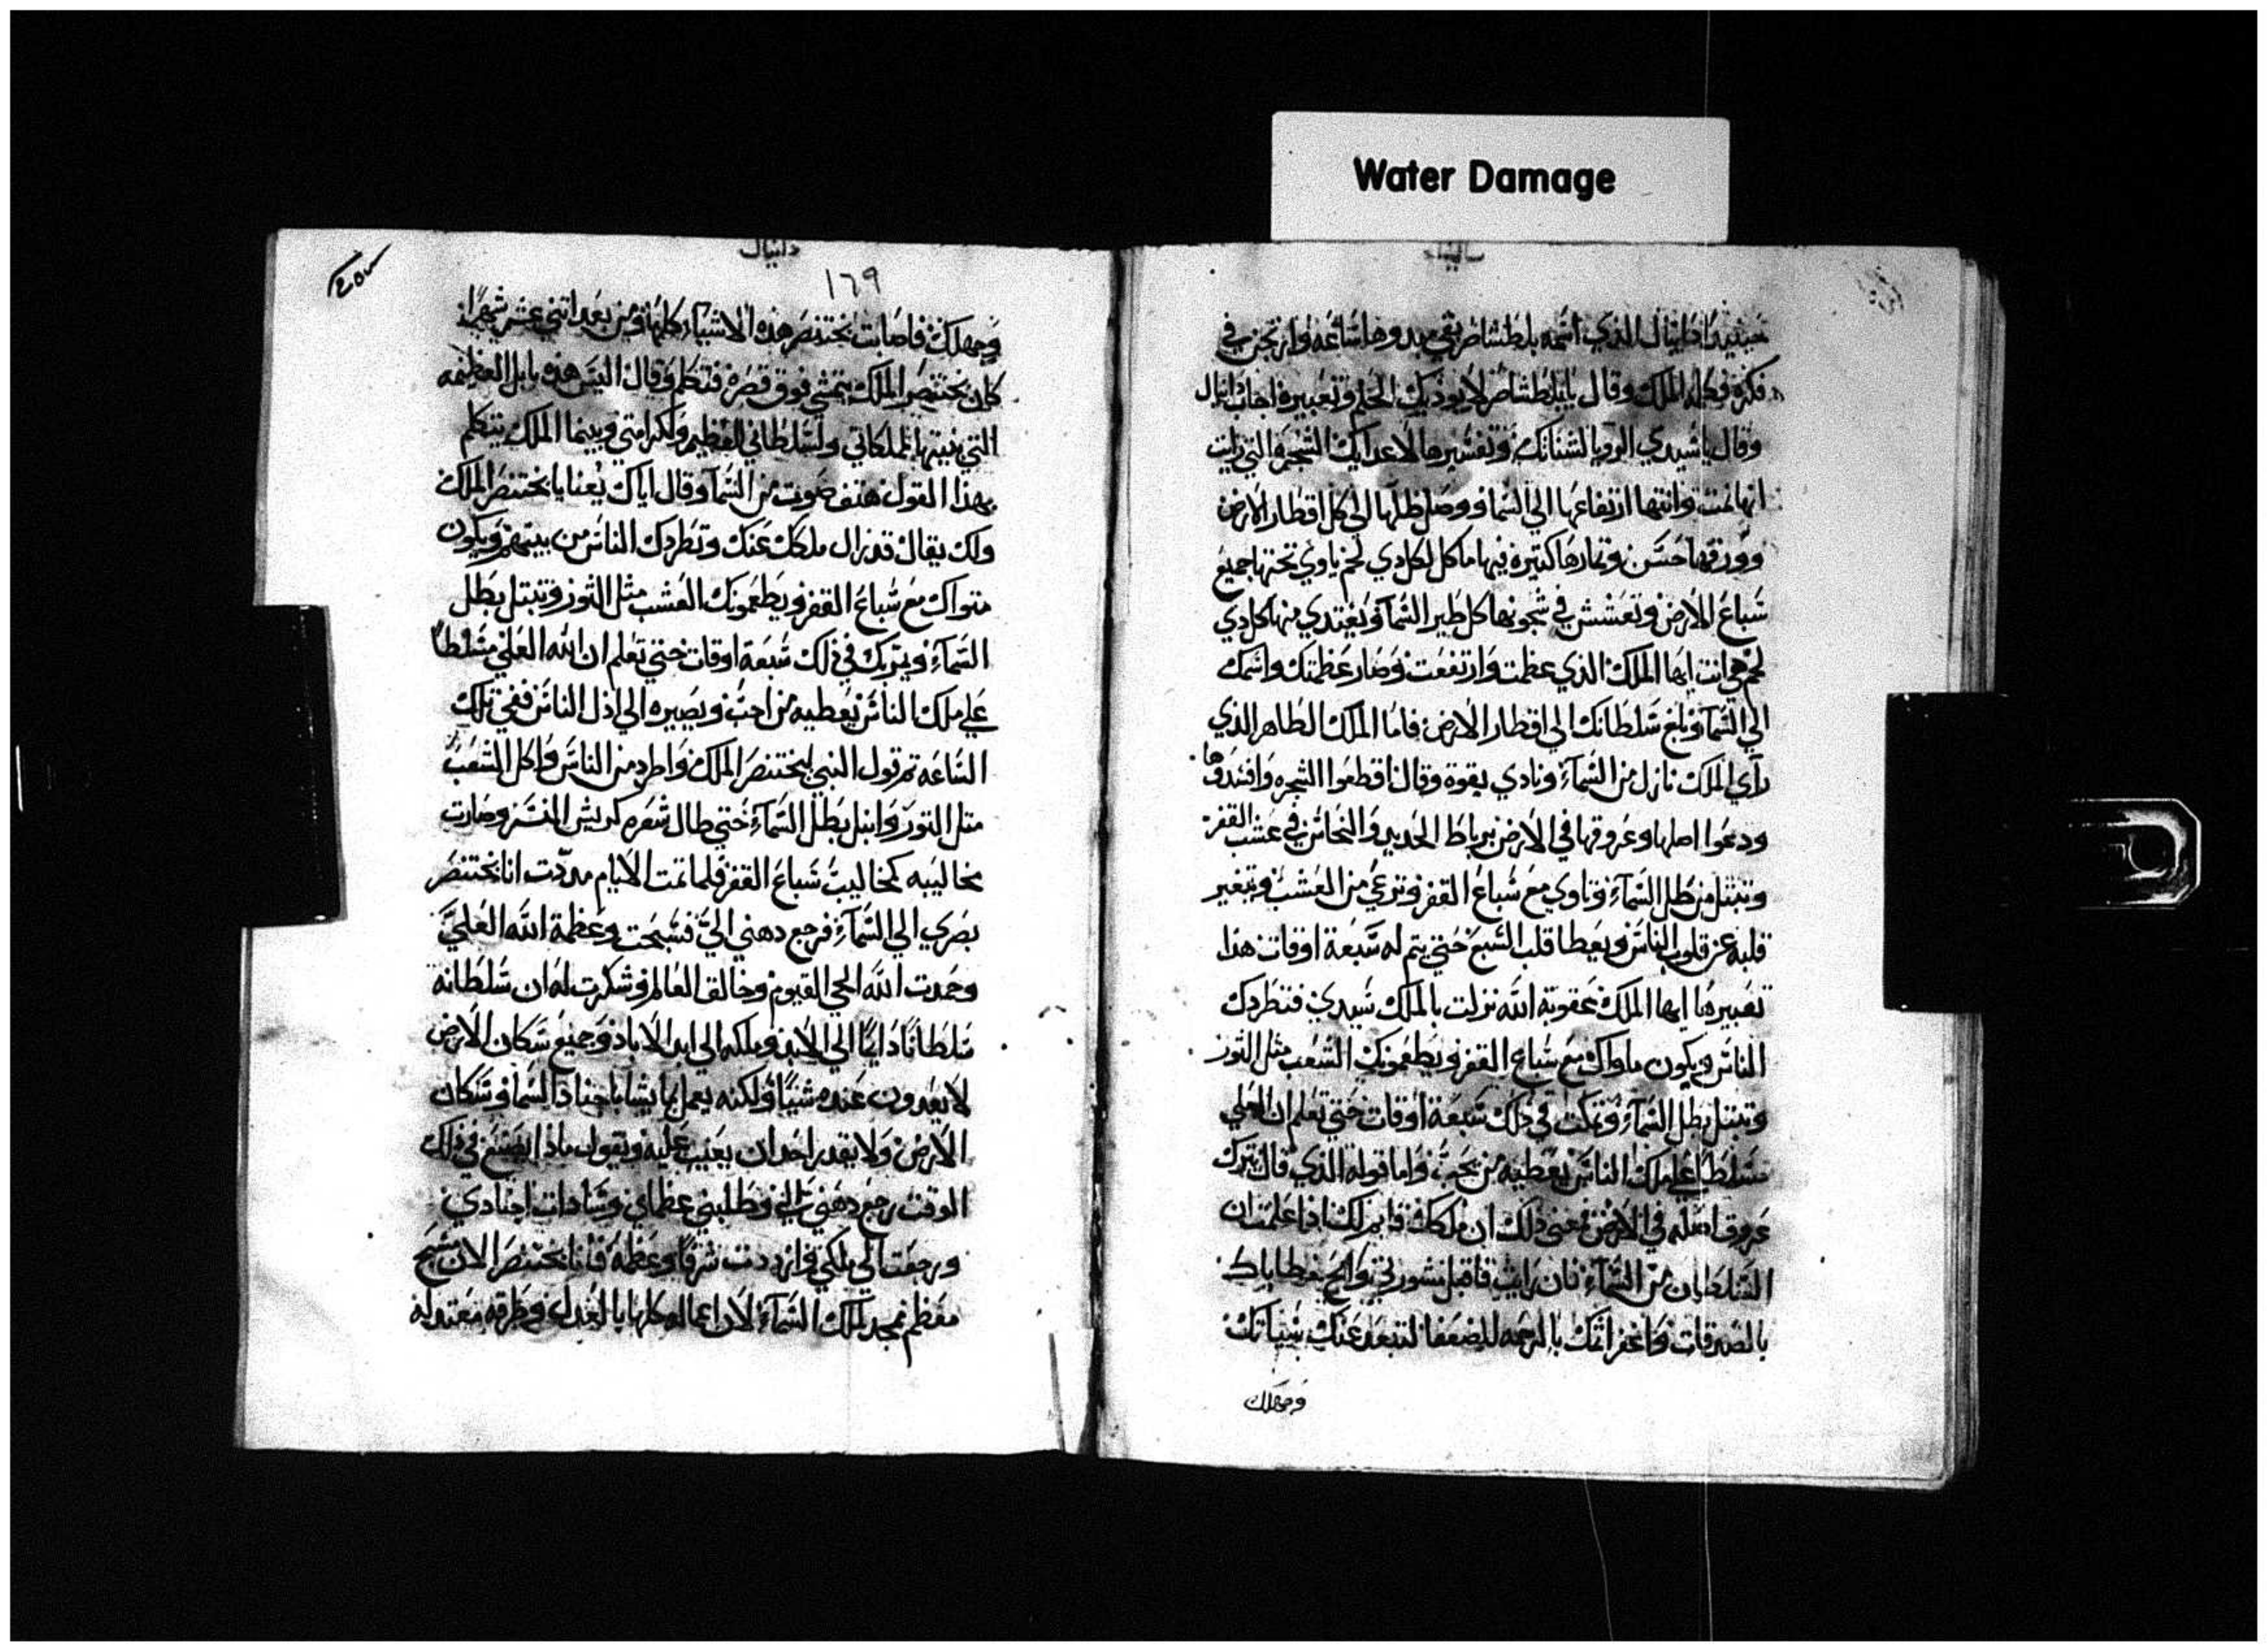 Water Damage
دانيال
حينيذ دانيال الذي اسمه بلطشاصر بقي مبدوها ساعه وارتجن في
فكره فكلمه الملك وقال يا بلطشاصر لا يوذيك الحلم وتعبيره اجاب دانيال
وقال يا سيدي الرويا لشناتك وتفسيرها لاعدايك الشجره التي رايت
انها نمت وانتها ارتفاعها الي السما ووصل ظلها الي كل اقطار الارض
وورقها حسن وثمارها كتيره فيها ماكل لكل دي لحم ياوي تحتها جميع
سباع الارض وتعشش في شجونها كل طير السما ويغتدي منها كل دي
لحم هي انت ايها الملك الذي عظمت وارتفعت وصار عظمتك واسمك
الي السما وبلغ سلطانك الي اقطار الارض فاما الملاك الطاهر الذي
راي الملك نازل من السمآء ونادي بقوة وقال اقطعوا الشجره وافسدوها
ودعوا اصلها وعروقها في الارض برباط الحديد والنحاس في عشب القفر
وتبتل من طل السمآء وتاوي مع سباع القفر وترعي من العشب ويتغير
قلبه عن قلوب الناس ويعطا قلب السبع حتي يتم له سبعة اوقات هذا
تعبيرها ايها الملك عقوبة الله نزلت بالملك سيدي فتطردك
الناس ويكون ماواك مع سباع القفر ويطعمونك الشعب مثل التور
وتبتل بطل السمآء وتمكث في ذلك سبعة اوقات حتي تعلم ان العلي
مسلطا علي ملك الناس يعطيه من يحب واما قوله الذي قال تترك
عروق اصله في الارض فمعني ذلك ان ملكك قايم لك اذا علمت ان
السلطان من السمآء فان رايت فاقبل مشورتي وامح خطاياك
بالصدقات واغفر اثمك بالرحمه للضعفا لتبعد عنك سيياتك
وجهلك
دانيال
١٦٩
وجهلك فاصابت بختنصر هذه الاشيآء كلها ومن بعد اتني عشر شهرا
كان بختنصر الملك يتمشي فوق قصره فتكلم وقال اليس هذه بابل العظيمه
التي بنيتها لمملكاتي ولسلطاني العظيم ولكرامتي وبينما الملك يتكلم
بهذا القول هتف صوت من السمآ وقال اياك يعنا يا بختنصر الملك
ولك يقال قد زال ملكك عنك وتطردك الناس من بينهم ويكون
متواك مع سباع القفر ويطعمونك العشب مثل الثور وتبتل بطل
السمآء ويتربك في ذلك سبعة اوقات حتي تعلم ان الله العلي مسلطا
علي ملك الناس يعطيه من احب ويصيره الي اذل الناس ففي تلك
الساعه تم قول النبي لبختنصر الملك واطرد من الناس واكل الشعب
متل التور وابتل بطل السمآء حتي طال شعره كريش النسر وصارت
مخاليبه كمخاليب سباع القفر فلما تمت الايام مددت انا بختنصر
بصري الي السمآء فرجع دهني الي فسبحت وعظمة الله العلي
وحمدت الله الحي القيوم وخالق العالم وشكرت له ان سلطانه
سلطانا دايما الي الابد وملكه الي ابد الاباد وجميع سكان الارض
لا يعدون عنده شييا ولكنه يعمل بما يشا باجناد السما وسكان
الارض ولا يقدر احد ان يعيب عليه ويقول ماذا يصنع في ذلك
الوقت رجع دهني الي وطلبني عظماي وسادات اجنادي
ورجعت الي ملكي وازددت شرفا وعظمة فانا بختنصر الان مسبح
معظم ممجد لملك السمآء لان اعماله كلها بالعدل وطرقه معتدله